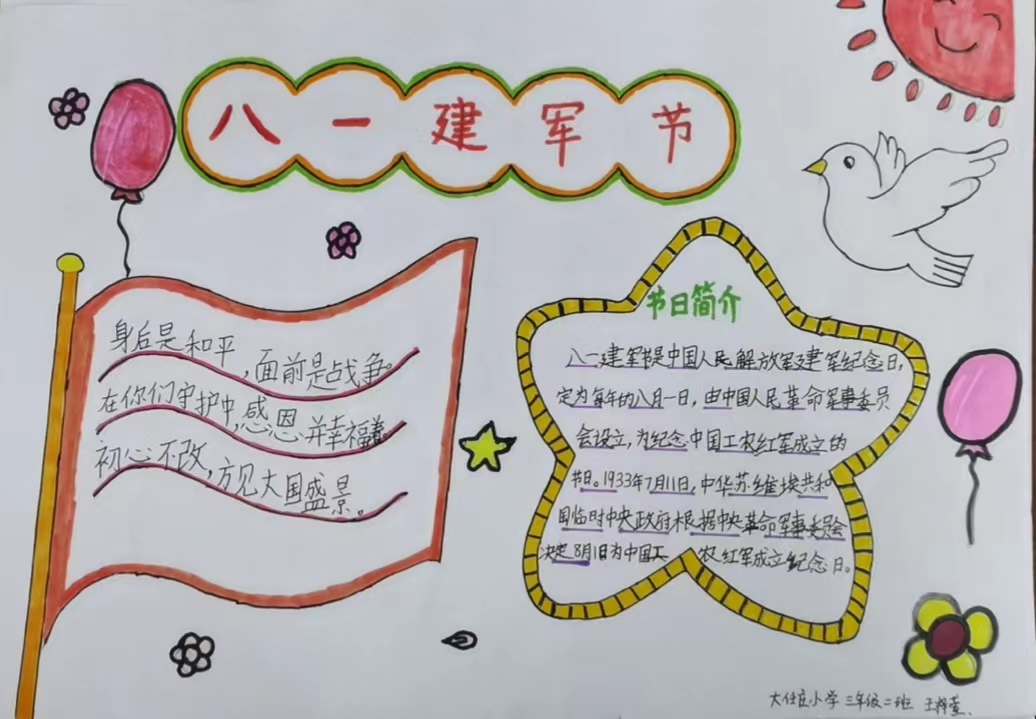 八一建军节
身后是和平,面前是战争。
在你们守护中,感恩并幸福着
初心不改,方见大国盛景。
节日简介
八一建军节是中国人民解放军建军纪念日,
定为每年的八月一日,由中国人民革命军事委员
会设立,为纪念中国工农红军成立的
节日。1933年7月11日,中华苏维埃共和
国临时中央政府根据中央革命军事委员会
决定8月1日为中国工农红军成立纪念日。
大任庄小学 三年级二班 王